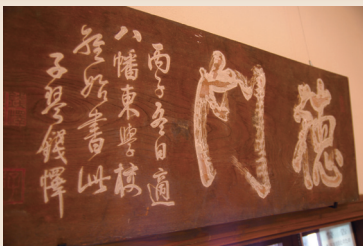 德門
丙子冬日適
八幡東學校
經始書此
子琴錢懌